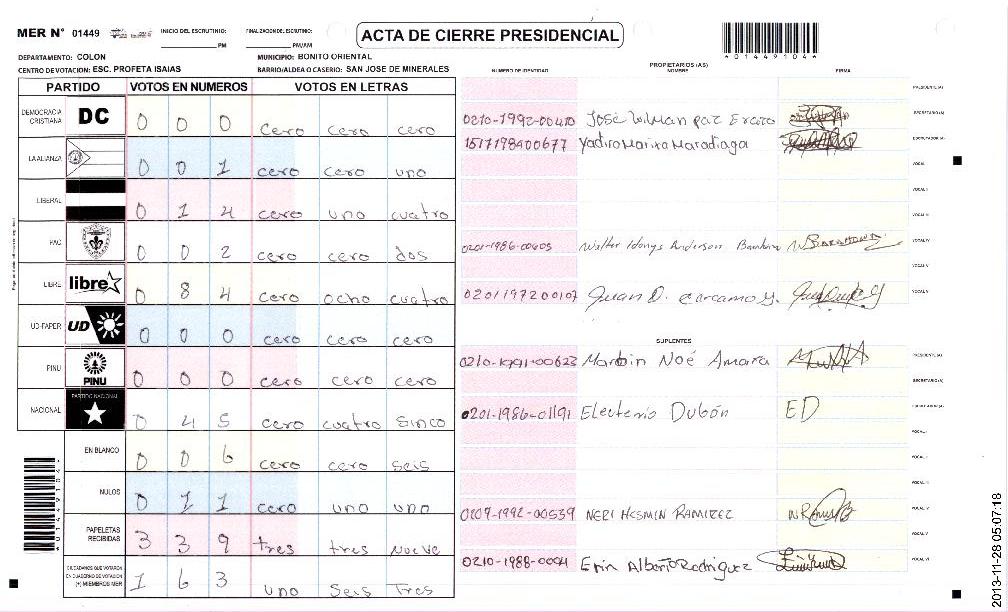 MER N° 01449 INICIO DEL ESCRUTINIO: PM FINALIZACION DEL ESCRUTINIO: PM/AM ACTA DE CIERRE PRESIDENCIAL
*01449104*
DEPARTAMENTO: COLON MUNICIPIO: BONITO ORIENTAL
CENTRO DE VOTACION: ESC. PROFETA ISAIAS BARRIO/ALDEA O CASERIO: SAN JOSE DE MINERALES
PARTIDO VOTOS EN NUMEROS VOTOS EN LETRAS
DEMOCRACIA CRISTIANA DC 0 0 0 cero cero cero
LA ALIANZA 0 0 1 cero cero uno
LIBERAL 0 1 4 cero uno cuatro
PAC 0 0 2 cero cero dos
LIBRE libre 0 8 4 cero ocho cuatro
UD-FAPER UD 0 0 0 cero cero cero
PINU PINU 0 0 0 cero cero cero
NACIONAL PARTIDO NACIONAL 0 4 5 cero cuatro sinco
EN BLANCO 0 0 6 cero cero seis
NULOS 0 1 1 cero uno uno
PAPELETAS RECIBIDAS 3 3 9 tres tres nueve
CIUDADANOS QUE VOTARON EN CUADERNO DE VOTACION (+) MIEMBROS MER 1 6 3 uno seis tres
*01449104*
PROPIETARIOS (AS)
NUMERO DE IDENTIDAD NOMBRE FIRMA
PRESIDENTE (A)
0210-1992-00410 José Wilman paz SECRETARIO (A)
1517198400677 Yadira Marixa Maradiaga ESCRUTADOR (A)
VOCAL
VOCAL II
VOCAL III
0201-1986-00605 Walter Idonys Anderson VOCAL IV
VOCAL V
0201197200107 Juan D. carcamo y. VOCAL VI
SUPLENTES
0210-1991-00623 Marbin Noé Amara PRESIDENTE (A)
SECRETARIO (A)
0201-1986-01191 Eleuterio Dubón ED ESCRUTADOR (A)
VOCAL I
VOCAL II
VOCAL III
0209-1992-00539 NERI HESMIN RAMIREZ VOCAL IV
VOCAL V
0210-1988-0041 Erin Alberto Rodriguez VOCAL VI
2013-11-28 05:07:18